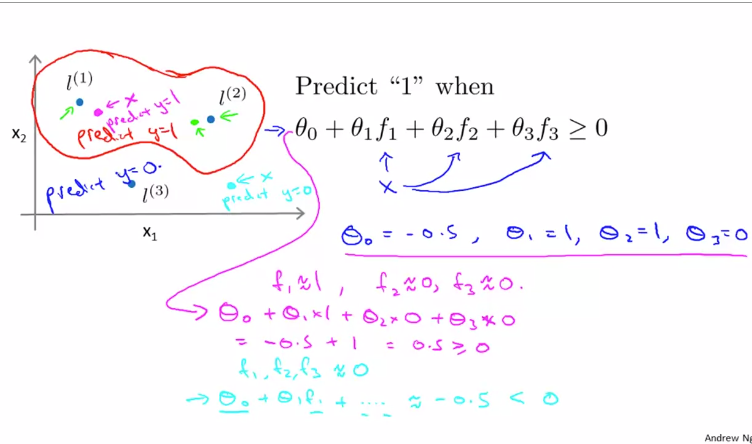 l^{(1)}
l^{(2)}
← x
predict y=1
predict y=1
x₂
predict y=0.
l^{(3)}
← x
predict y=0
x₁
Predict “1” when
→ θ₀ + θ₁f₁ + θ₂f₂ + θ₃f₃ ≥ 0
x
θ₀ = -0.5, θ₁ = 1, θ₂ = 1, θ₃ = 0
f₁ ≈ 1, f₂ ≈ 0, f₃ ≈ 0.
→ θ₀ + θ₁×1 + θ₂×0 + θ₃×0
= -0.5 + 1 = 0.5 ≥ 0
f₁, f₂, f₃ ≈ 0
→ θ₀ + θ₁f₁ + .... ≈ -0.5 < 0
Andrew Ng